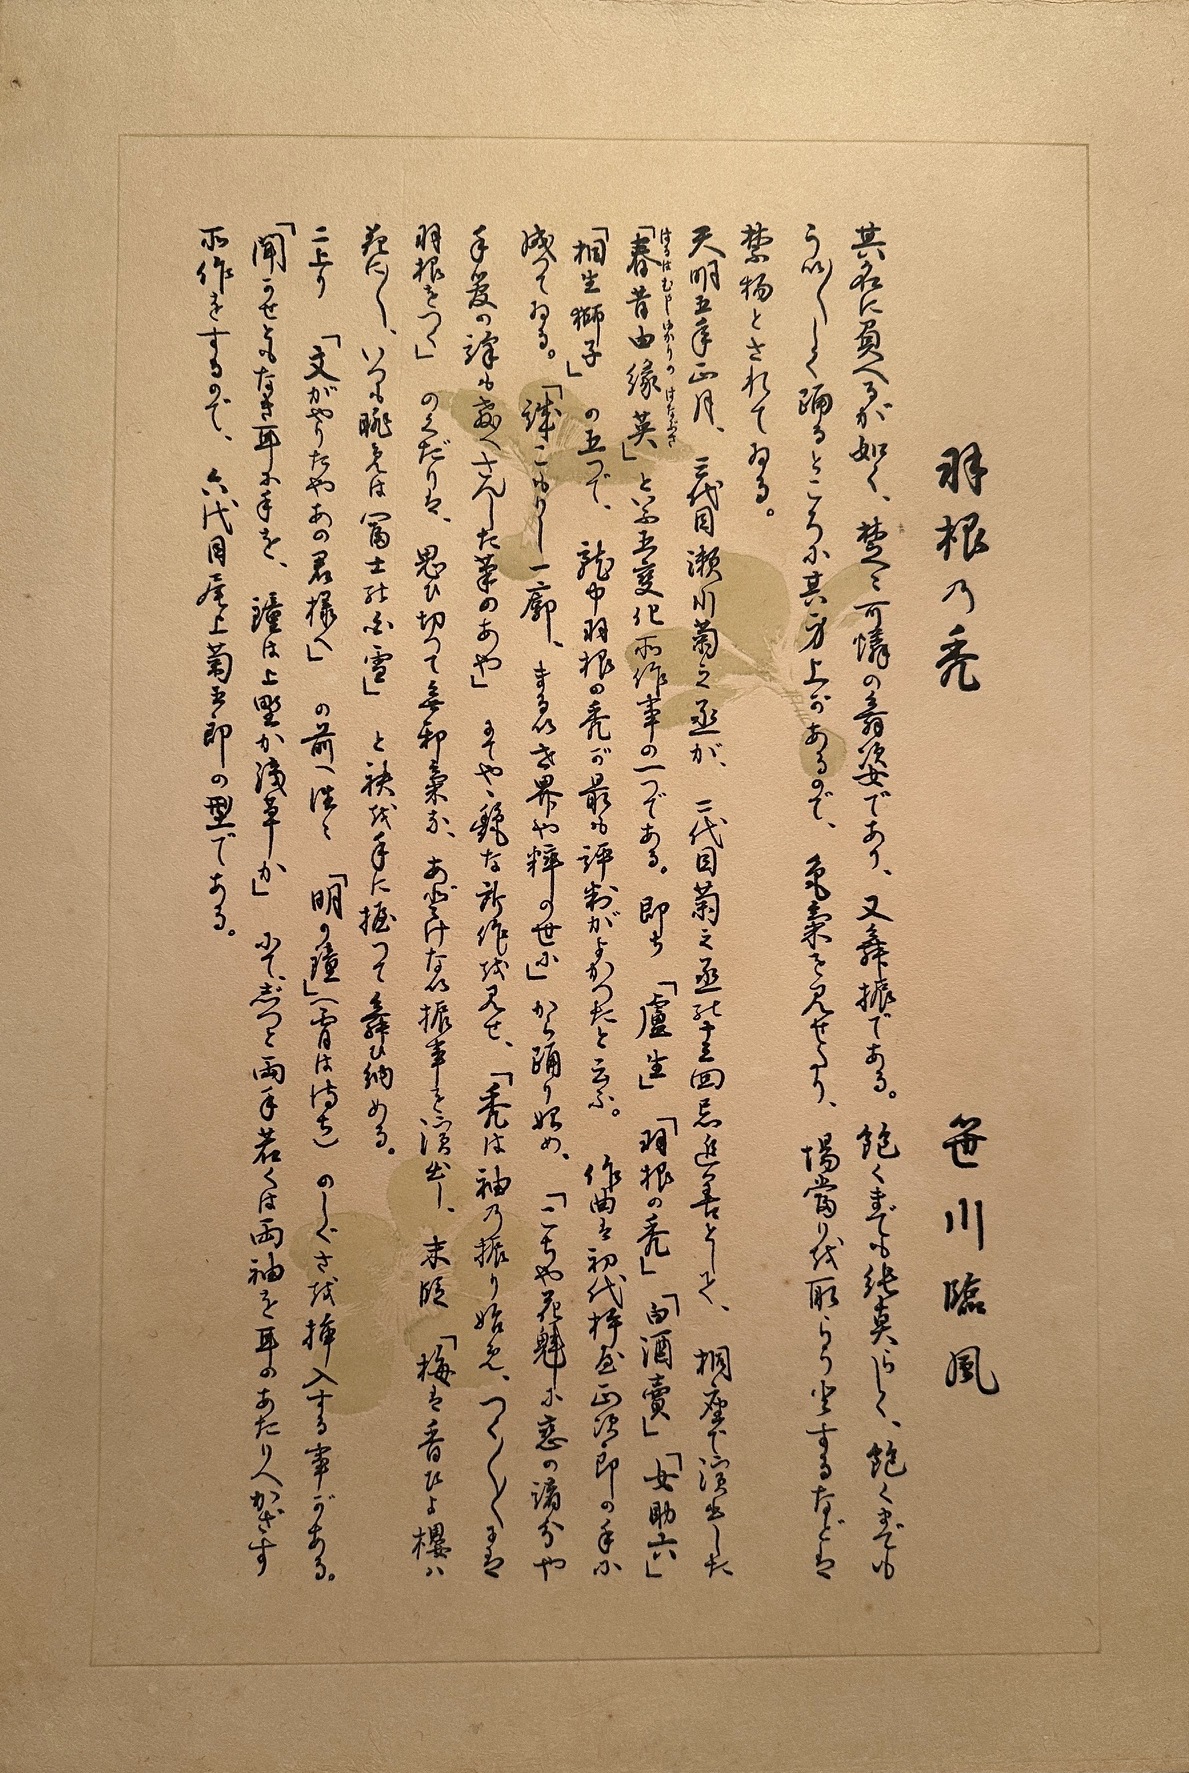 羽根乃禿　笹川臨風
其名に負へるが如く、楚々可憐の舞姿であり、又舞振である。飽くまでも純真らしく、飽くまでも
う以〳〵しく踊るところに其身上があるので、色気を見せたり、場当り式取らうとするなどは
禁物とされてゐる。
天明五年正月、三代目瀬川菊之丞が、二代目菊之丞の十三回忌追善として、桐座で演出した
「春昔由縁英」といふ五変化所作事の一つである。即ち「盧生」「羽根の禿」「白酒賣」「女助六」
はるはむかしゆかりのはなぶさ
「相生獅子」の五つで、就中羽根の禿が最も評判がよかつたと云ふ。作曲は初代杵屋正次郎の手に
成つてゐる。「誰こもりし一廓、まるい世界や粋の世に」から踊り始め、「こちや花魁に恋の諸分や
手管の譯も教へさんした筆のあや」まで、艶な所作を見せ、「禿は袖の振り始め、つく〳〵〳〵には
羽根をつく」のくだりは、思ひ切つて無邪気な、あどけない振事を演出し、末段「梅は香ひよ櫻は
花に〳〵、いつも眺めは富士の白雪」と袂を手に握つて舞ひ納める。
二上り「文がやりたやあの君様へ」の前へ往々「明の鐘」（宵は待ち）のしぐさを挿入する事がある。
「聞かせともなき耳に手を、鐘は上野か浅草か」にて、ぢつと両手若くは両袖を耳のあたりへかざす
所作をするので、六代目尾上菊五郎の型である。